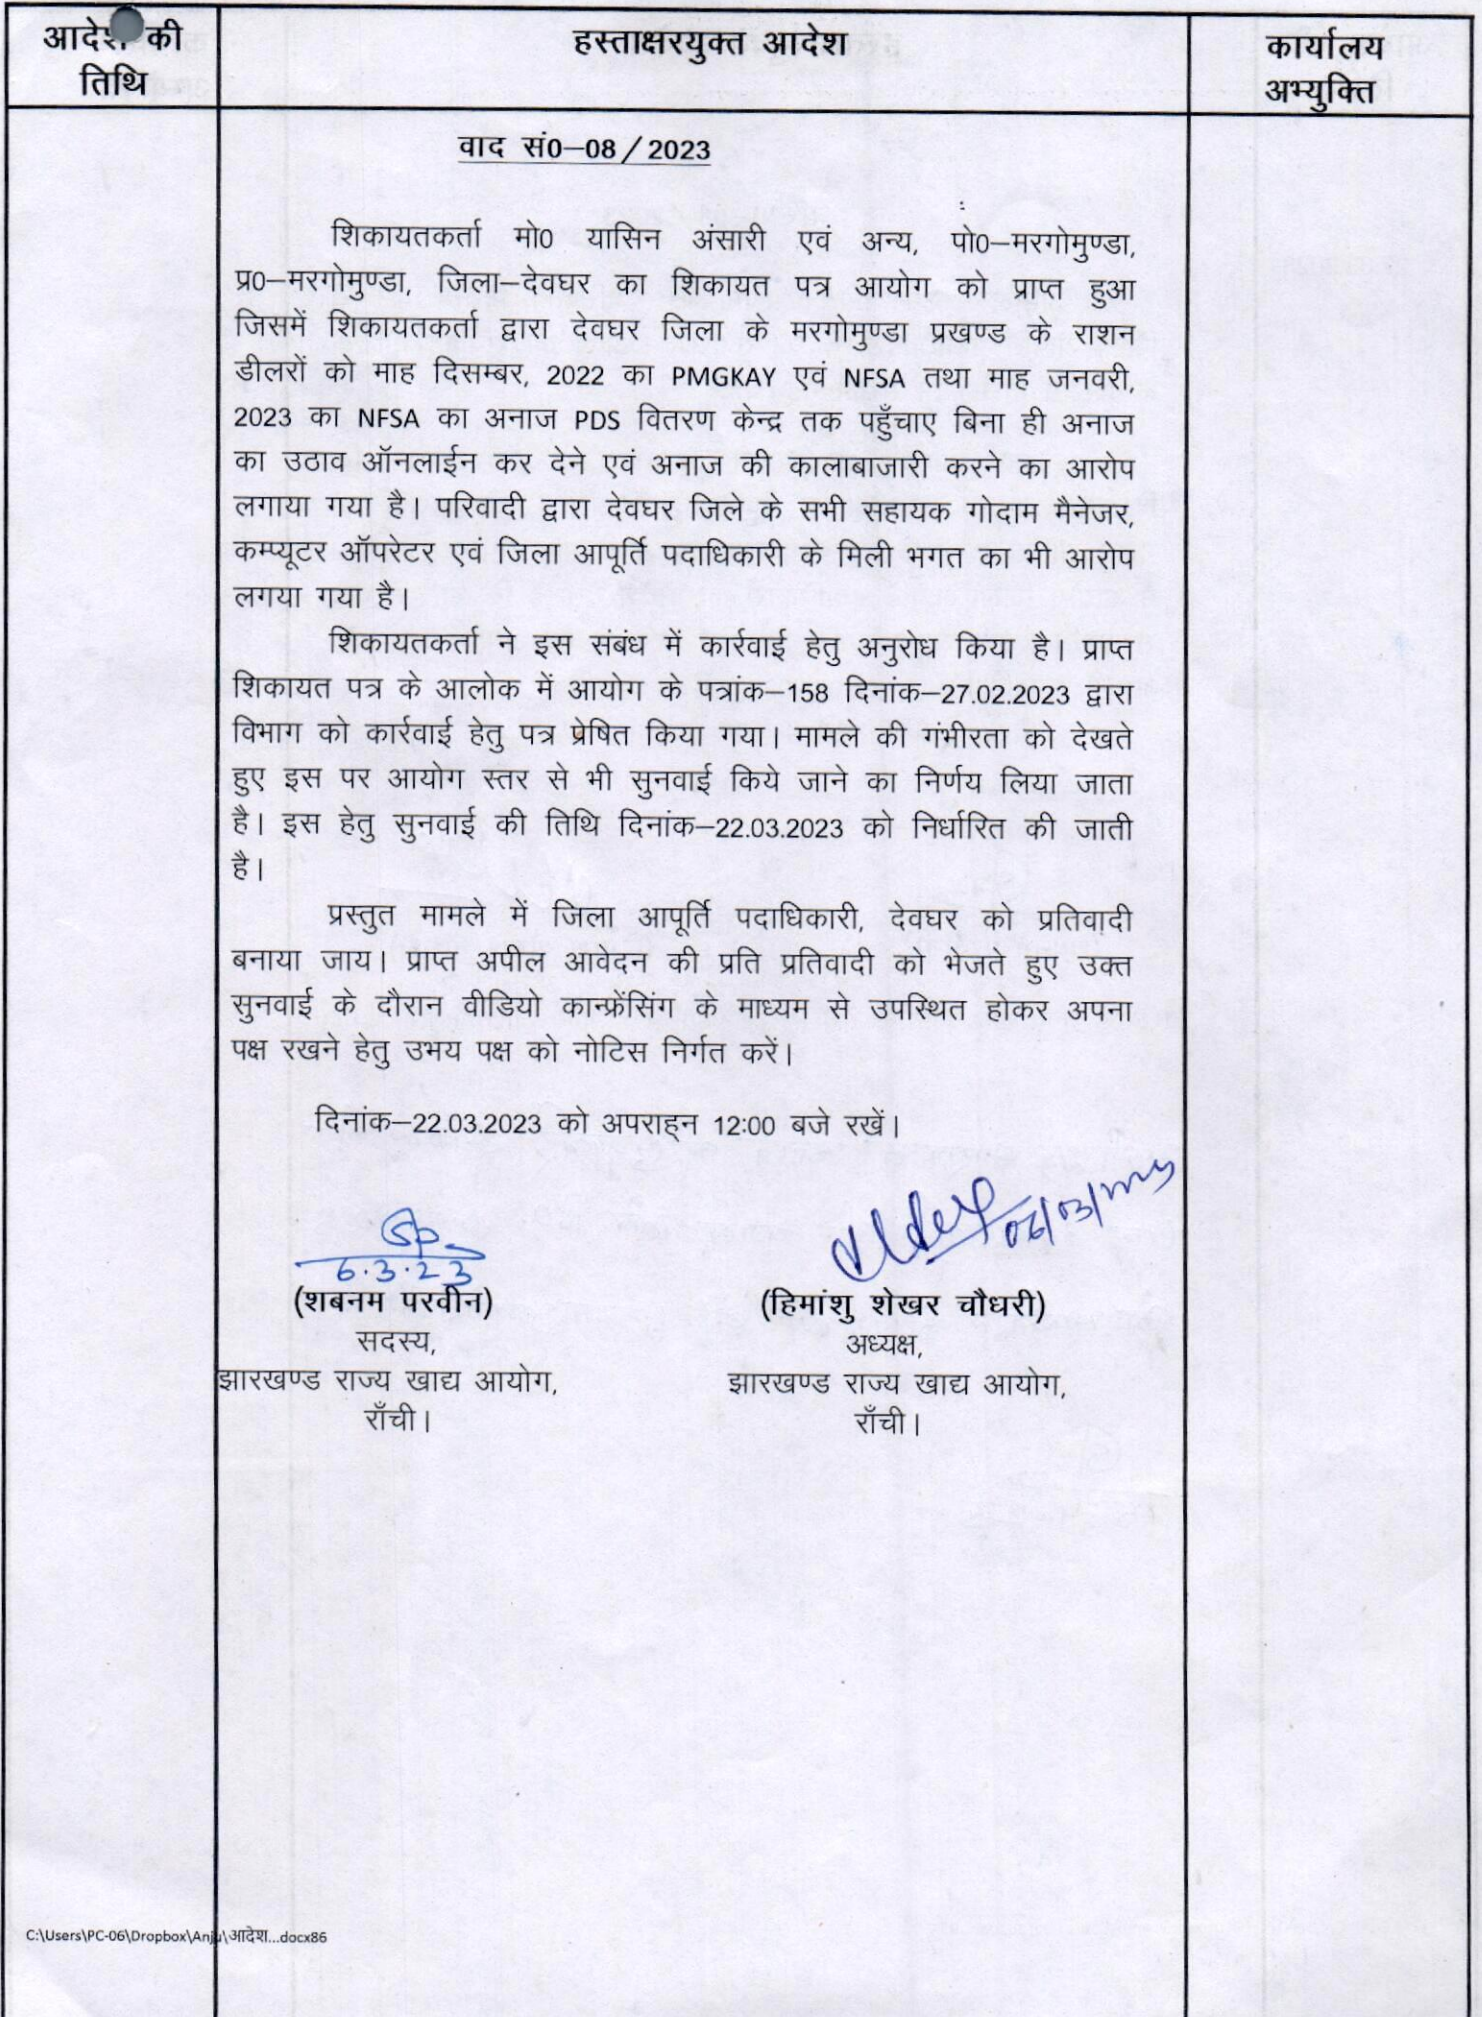 आदेश की
तिथि
हस्ताक्षरयुक्त आदेश
कार्यालय
अभ्युक्ति
वाद सं0–08/2023
शिकायतकर्ता मो0 यासिन अंसारी एवं अन्य, पो0–मरगोमुण्डा,
प्र0–मरगोमुण्डा, जिला–देवघर का शिकायत पत्र आयोग को प्राप्त हुआ
जिसमें शिकायतकर्ता द्वारा देवघर जिला के मरगोमुण्डा प्रखण्ड के राशन
डीलरों को माह दिसम्बर, 2022 का PMGKAY एवं NFSA तथा माह जनवरी,
2023 का NFSA का अनाज PDS वितरण केन्द्र तक पहुँचाए बिना ही अनाज
का उठाव ऑनलाईन कर देने एवं अनाज की कालाबाजारी करने का आरोप
लगाया गया है। परिवादी द्वारा देवघर जिले के सभी सहायक गोदाम मैनेजर,
कम्प्यूटर ऑपरेटर एवं जिला आपूर्ति पदाधिकारी के मिली भगत का भी आरोप
लगया गया है।
शिकायतकर्ता ने इस संबंध में कार्रवाई हेतु अनुरोध किया है। प्राप्त
शिकायत पत्र के आलोक में आयोग के पत्रांक–158 दिनांक–27.02.2023 द्वारा
विभाग को कार्रवाई हेतु पत्र प्रेषित किया गया। मामले की गंभीरता को देखते
हुए इस पर आयोग स्तर से भी सुनवाई किये जाने का निर्णय लिया जाता
है। इस हेतु सुनवाई की तिथि दिनांक–22.03.2023 को निर्धारित की जाती
है।
प्रस्तुत मामले में जिला आपूर्ति पदाधिकारी, देवघर को प्रतिवादी
बनाया जाय। प्राप्त अपील आवेदन की प्रति प्रतिवादी को भेजते हुए उक्त
सुनवाई के दौरान वीडियो कान्फ्रेंसिंग के माध्यम से उपस्थित होकर अपना
पक्ष रखने हेतु उभय पक्ष को नोटिस निर्गत करें।
दिनांक–22.03.2023 को अपराह्न 12:00 बजे रखें।
6.3.23
(शबनम परवीन)
सदस्य,
झारखण्ड राज्य खाद्य आयोग,
राँची।
06/03/
(हिमांशु शेखर चौधरी)
अध्यक्ष,
झारखण्ड राज्य खाद्य आयोग,
राँची।
C:\Users\PC-06\Dropbox\Anju\आदेश...docx86